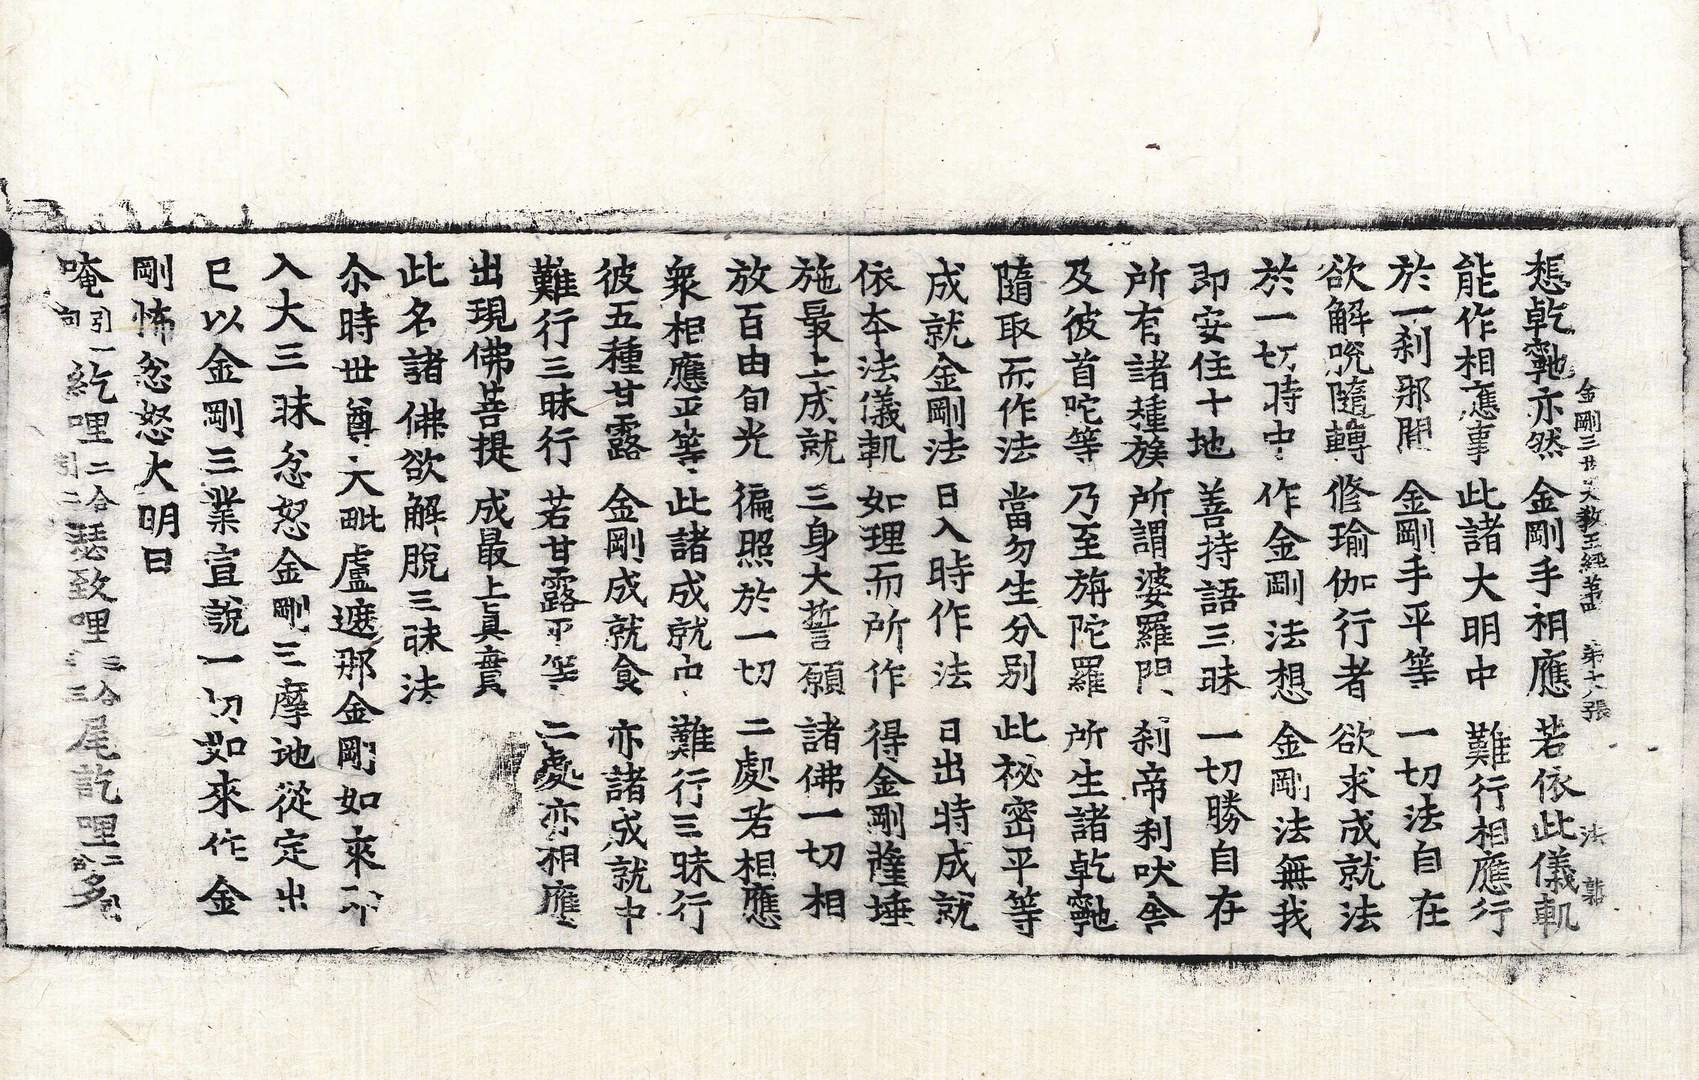 金剛三業大教王經第四　第十八張　法
想乾㝹亦然　金剛手相應　若依此儀軌
能作相應事　此諸大明中　難行相應行
於一刹那間　金剛手平等　一切法自在
欲解脫隨轉　修瑜伽行者　欲求成就法
於一切時中　作金剛法想　金剛法無我
即安住十地　善持語三昧　一切勝自在
所有諸種族　所謂婆羅門　刹帝利吠舍
及彼首陀等　乃至旃陀羅　所生諸乾㝹
隨取而作法　當勿生分別　此祕密平等
成就金剛法　日入時作法　日出時成就
依本法儀軌　如理而所作　得金剛薩埵
施最上成就　三身大誓願　諸佛一切相
放百由旬光　徧照於一切　二處若相應
衆相應平等　此諸成就中　難行三昧行
彼五種甘露　金剛成就食　亦諸成就中
難行三昧行　若甘露平等　二處亦相應
出現佛菩提　成最上眞實
此名諸佛欲解脫三昧法
尒時世尊大毗盧遮那金剛如來卽
入大三昧忿怒金剛三摩地從定出
已以金剛三業宣說一切如來作金
剛怖忿怒大明曰
唵引一紇哩二合引二瑟致哩三合三尾訖哩二合多